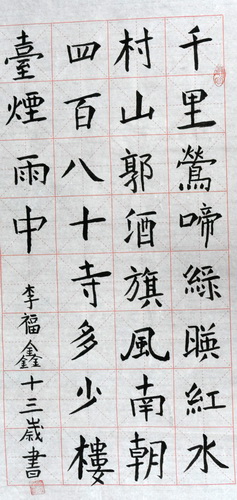 千里鶯啼綠暎紅水
村山郭酒旗風南朝
四百八十寺多少樓
臺煙雨中
李福鑫十三歲書